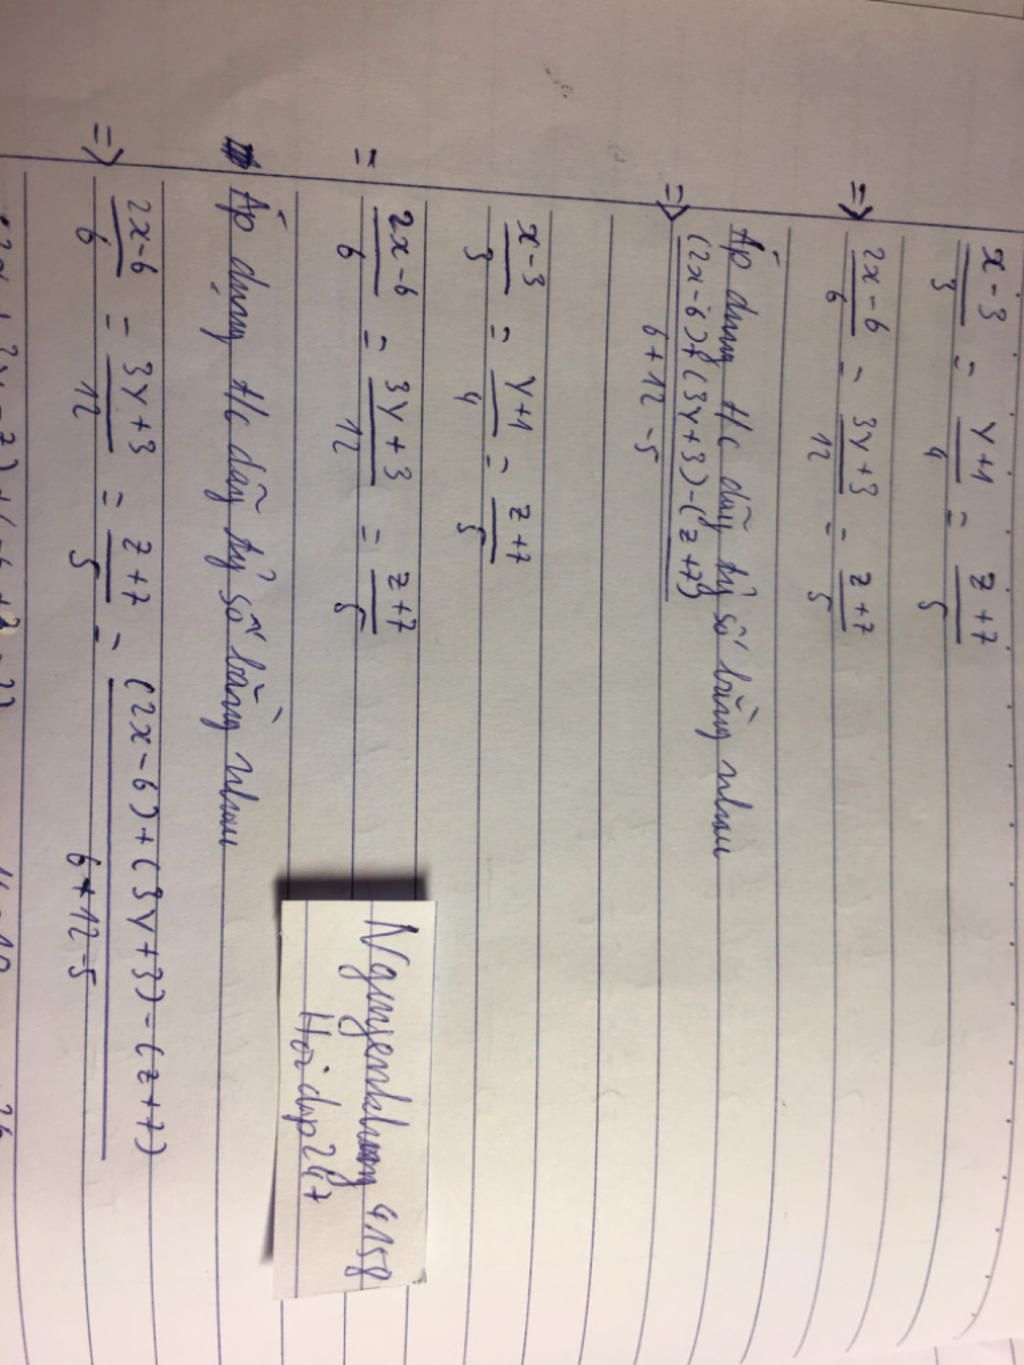 x-3/3 = y+1/4 = z+7/5
=> 2x-6/6 = 3y+3/12 = z+7/5
Áp dụng t/c dãy tỷ số bằng nhau
=> (2x-6)+(3y+3)-(z+7)/6+12-5
x-3/3 = y+1/4 = z+7/5
= 2x-6/6 = 3y+3/12 = z+7/5
Áp dụng t/c dãy tỷ số bằng nhau
=> 2x-6/6 = 3y+3/12 = z+7/5 = (2x-6)+(3y+3)-(z+7)/6+12-5
Nguyenkhuong 4158
Hoi dap 247